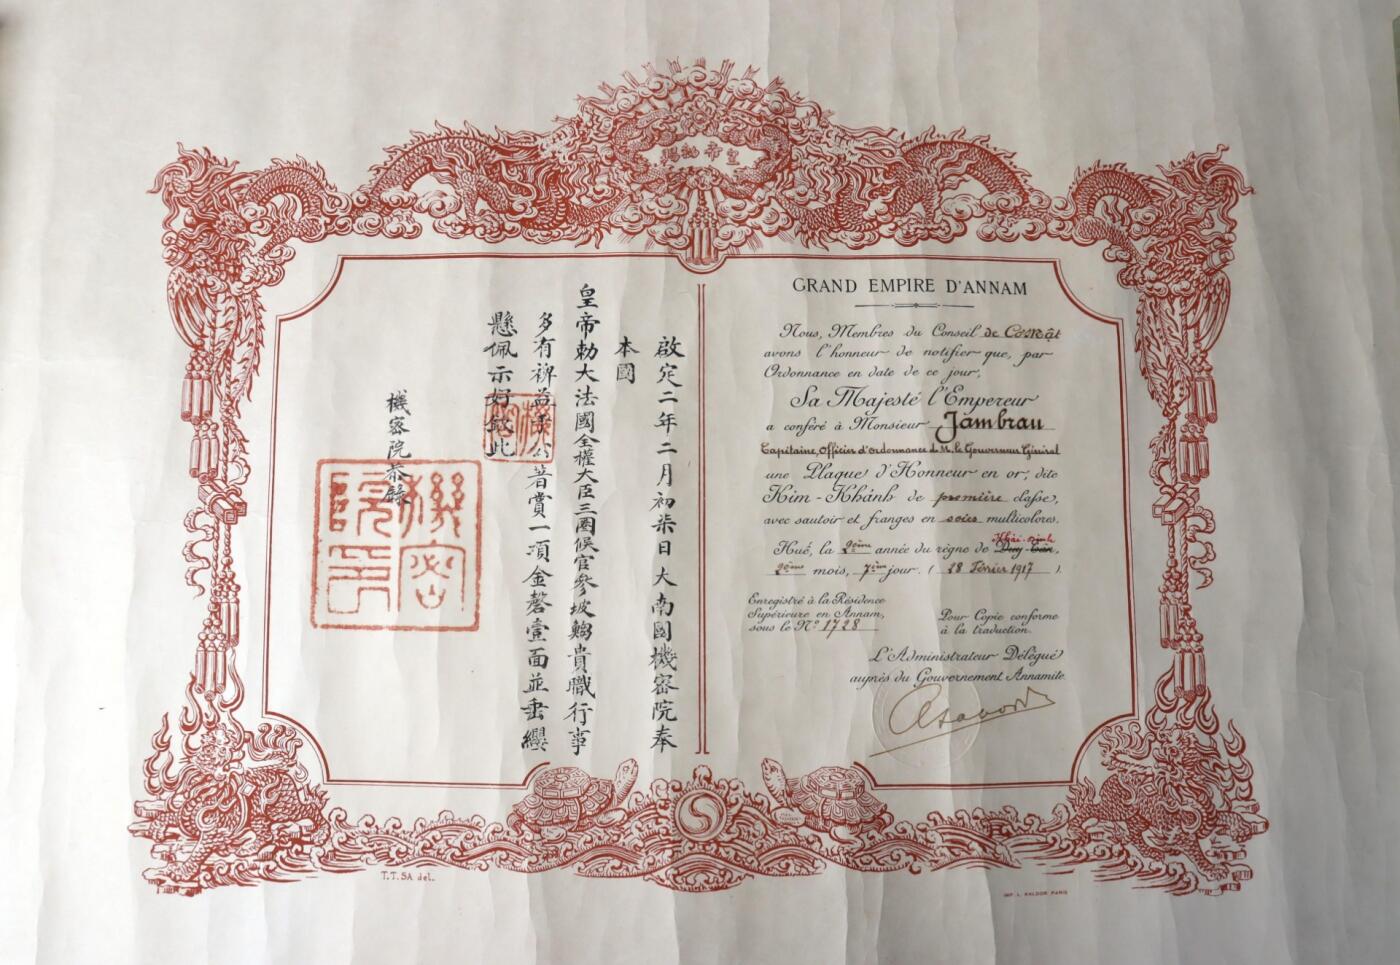 皇帝勅賜
啟定二年二月初柒日大南國機密院奉
本國
皇帝勅大法國全權大臣三圈候官參坡𬇙貴職行事
多有裨益予公著賞一項金磬壹面並垂纓
懸佩示好欽此
機密院恭錄
機密院印
機密
GRAND EMPIRE D'ANNAM
Nous, Membres du Conseil de Cơ Mật
avons l'honneur de notifier que, par
Ordonnance en date de ce jour,
Sa Majesté l'Empereur
a conféré à Monsieur Jambrau
Capitaine, Officier d'Ordonnance de M. le Gouverneur Général
une Plaque d'Honneur en or, dite
Kim-Khánh de première classe,
avec sautoir et franges en soies multicolores.
Khải-Định
Huế, la 2ème année du règne de Duy-Tân,
2ème mois, 7ème jour. (28 Février 1917).
Enregistré à la Résidence
Supérieure en Annam,
sous le Nº 1728
Pour Copie conforme
à la traduction.
L'Administrateur Délégué
auprès du Gouvernement Annamite.
T.T.SA del.
IMP. L. KALDOR PARIS